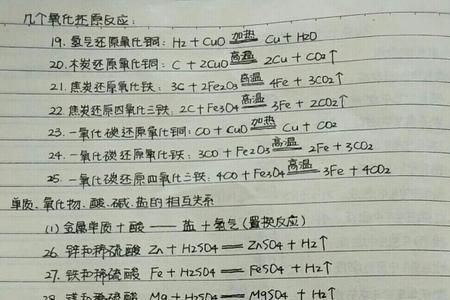 几个氧化还原反应:
19.氢气还原氧化铜: H2 + CuO 加热 Cu + H2O
20.木炭还原氧化铜: C + 2CuO 高温 2Cu + CO2↑
21.焦炭还原氧化铁: 3C + 2Fe2O3 高温 4Fe + 3CO2↑
22.焦炭还原四氧化三铁: 2C + Fe3O4 高温 3Fe + 2CO2↑
23.一氧化碳还原氧化铜: CO + CuO 加热 Cu + CO2
24.一氧化碳还原氧化铁: 3CO + Fe2O3 高温 2Fe + 3CO2
25.一氧化碳还原四氧化三铁: 4CO + Fe3O4 高温 3Fe + 4CO2
单质、氧化物、酸、碱、盐的相互关系
(1)金属单质 + 酸 —— 盐 + 氢气 (置换反应)
26.锌和稀硫酸 Zn + H2SO4 == ZnSO4 + H2↑
27.铁和稀硫酸 Fe + H2SO4 == FeSO4 + H2↑
28.镁和稀硫酸 Mg + H2SO4 == MgSO4 + H2↑